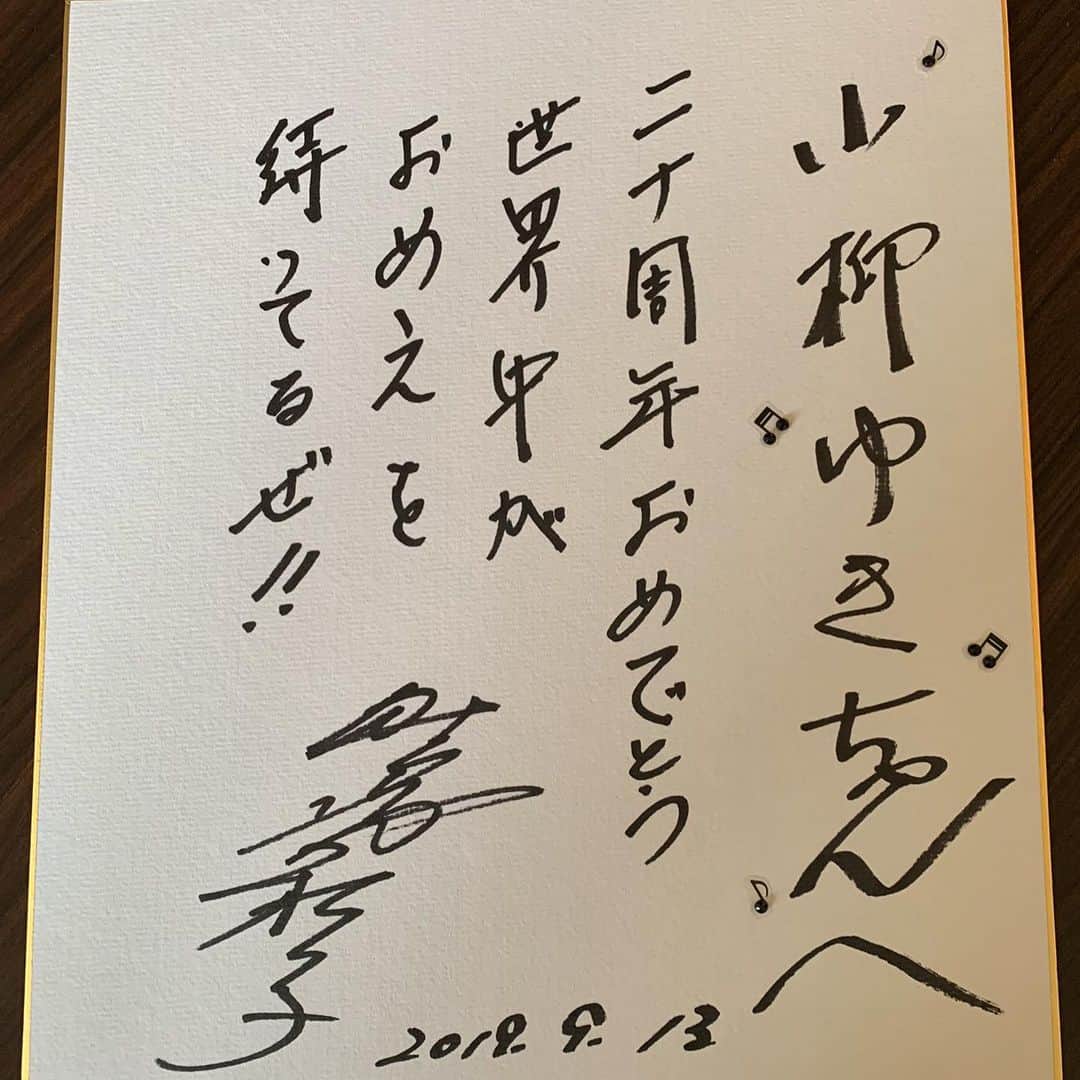 小柳ゆきちゃんへ
二十周年おめでとう
世界中が
おめえを
待ってるぜ!!
2019.9.13